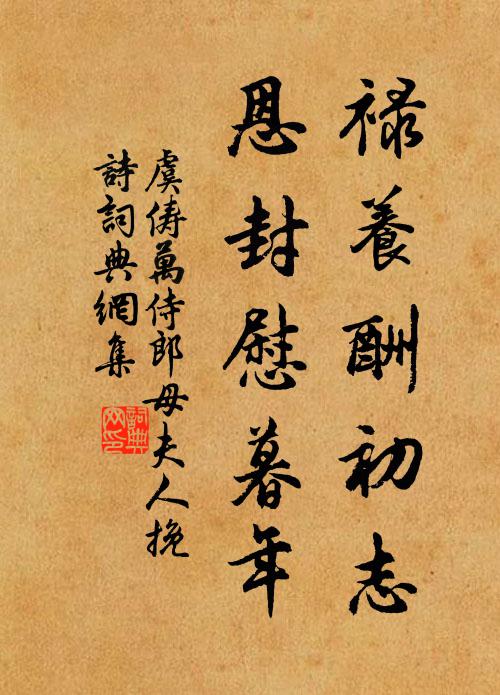 禄養酬初志
恩封慰暮年
虞俦萬侍郎母夫人挽
詩詞典網集
詞典
文印